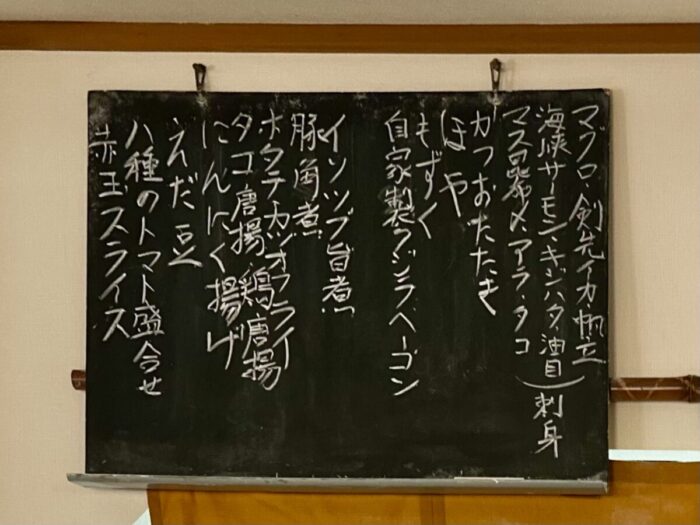 マグロ、剣先イカ、帆立
海峡サーモン、キジハタ、油目
マス昆布〆、アラ、タコ
刺身
かつおたたき
ほや
もずく
自家製クジラベーコン
イソツブ旨煮
豚角煮
ホタテ、カツオフライ
タコ唐揚、鶏唐揚
にんにく揚げ
えだ豆
八種のトマト盛合せ
赤玉スライス